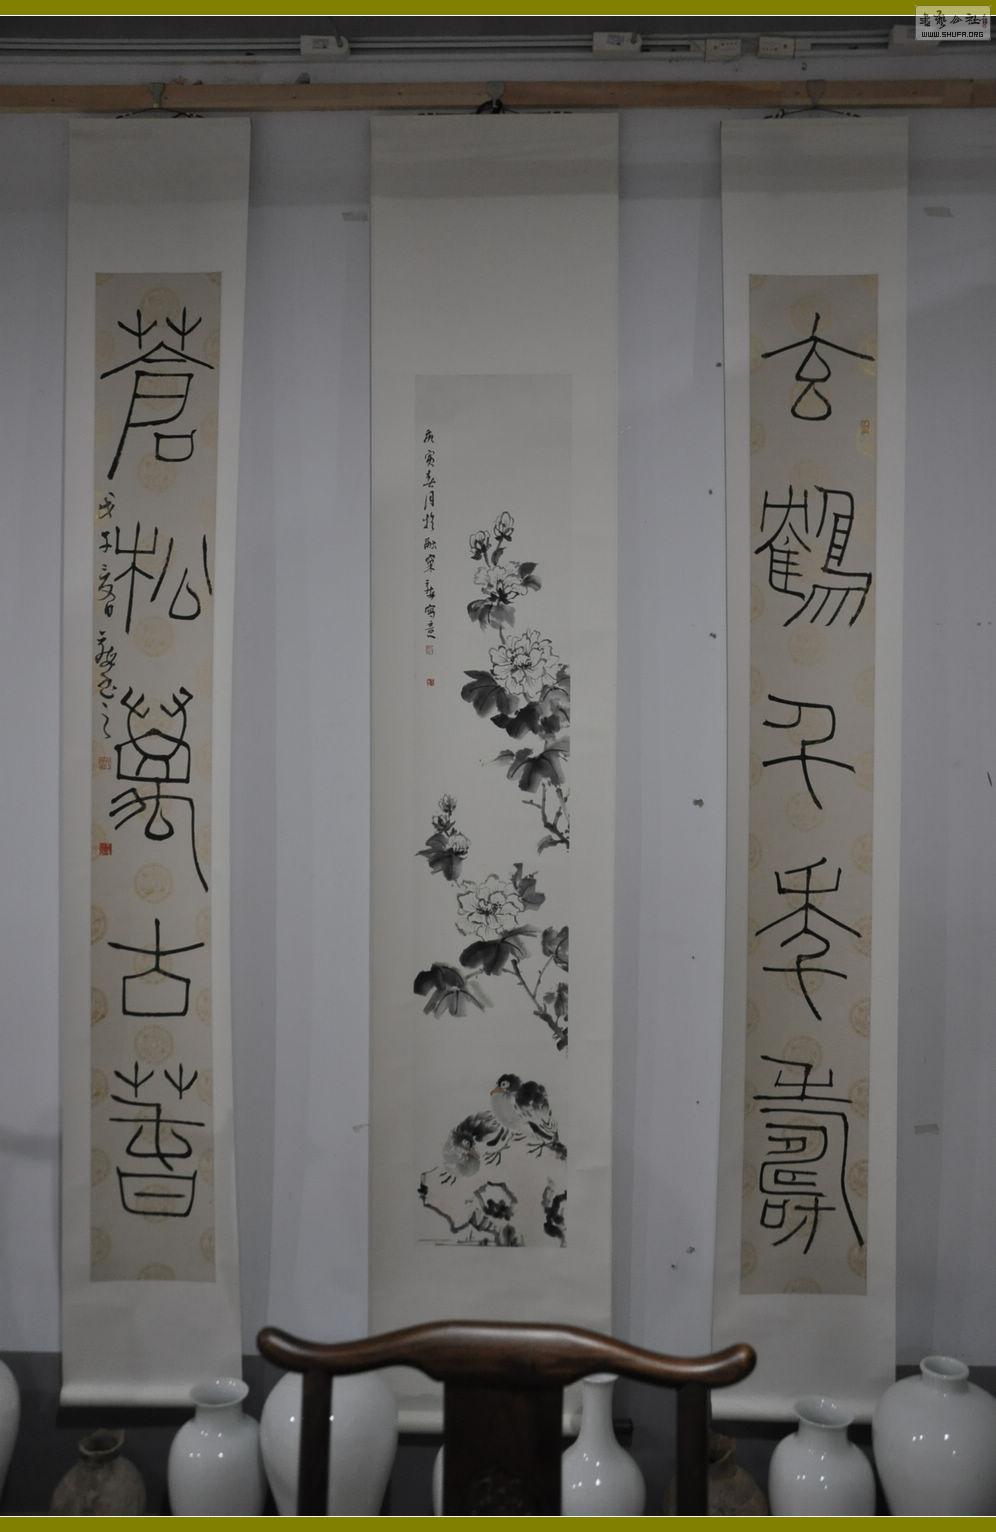 玄鶴千年壽
蒼松萬古春
戊子夏日
庚寅春月於
寫意
書法公社
WWW.SHUFA.ORG